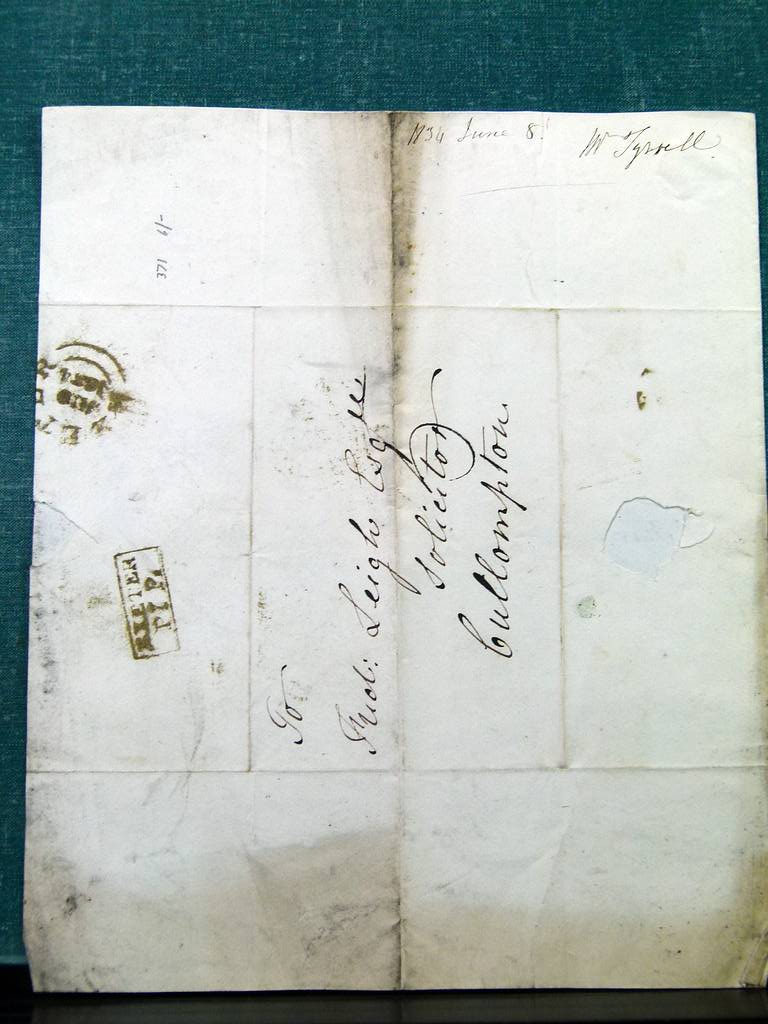 1834 June 8.
Mr Tyrrell
371 6/-
EXETER
PY P.
To
Fred: Leigh Esqre
Solicitor
Cullompton.